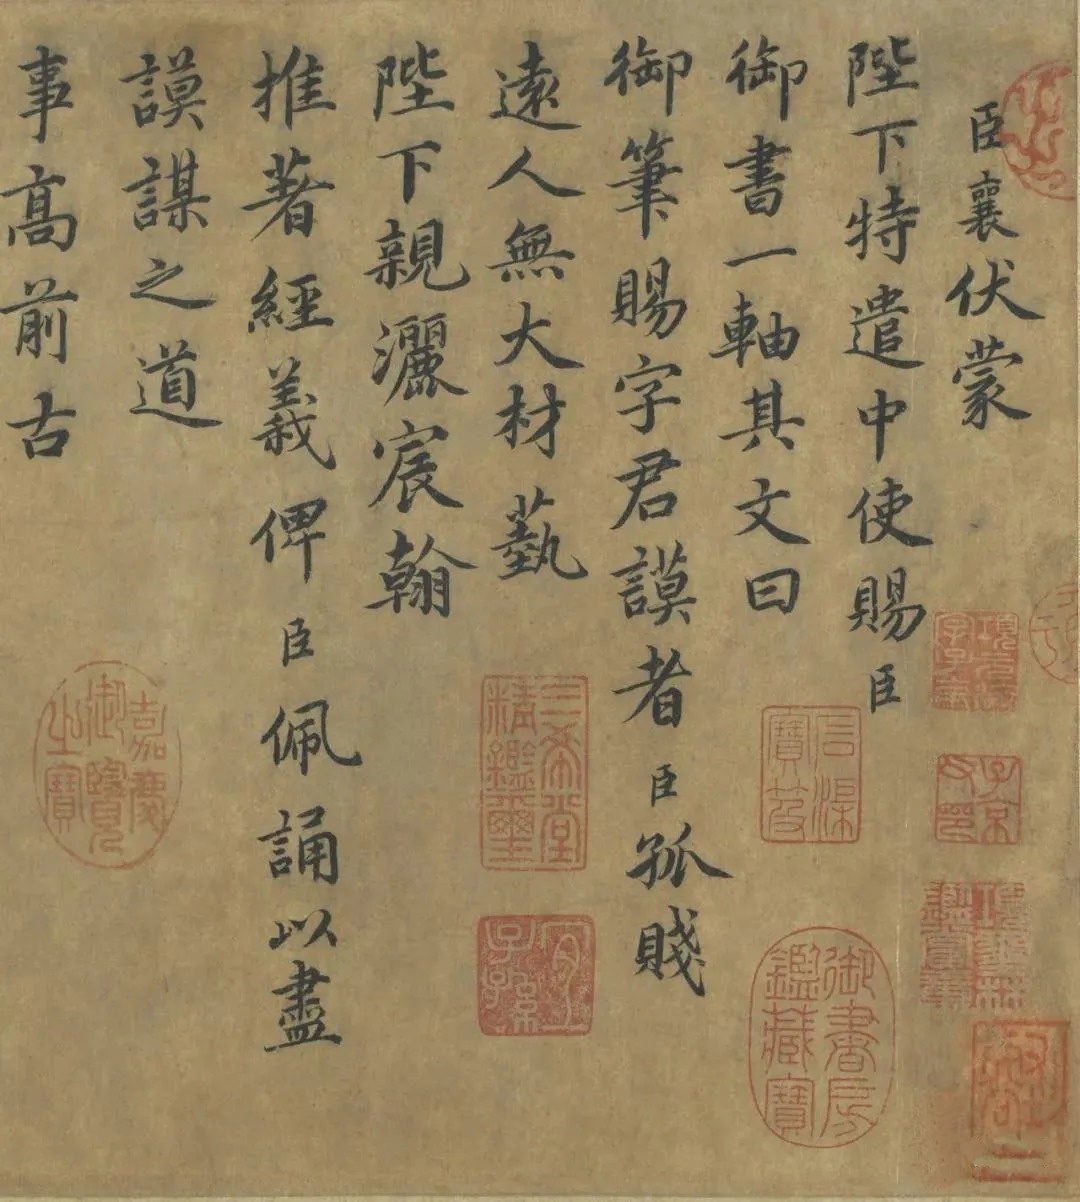 臣襄伏蒙
陛下特遣中使賜臣
御書一軸其文曰
御筆賜字君謨者臣孤賤
遠人無大材藝
陛下親灑宸翰
推著經義俾臣佩誦以盡
謨謀之道
事高前古
三希堂精鑑璽
宜子孫
嘉慶御覽之寶
御書房鑑藏寶